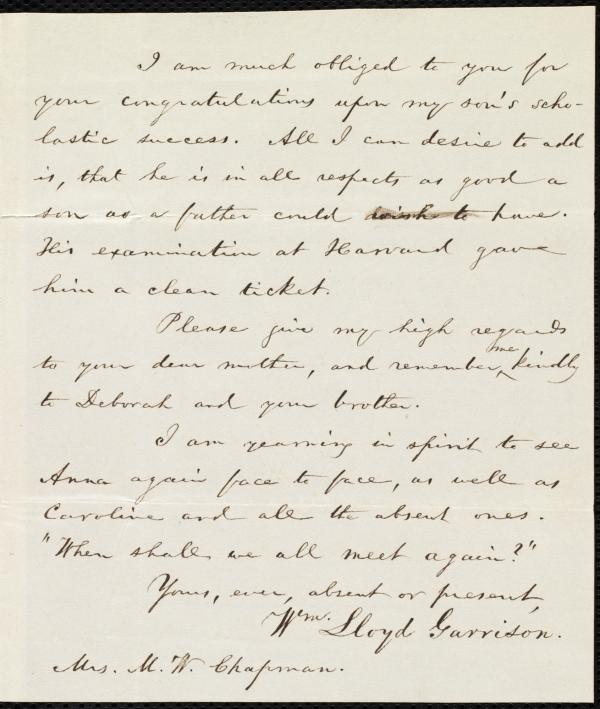 I am much obliged to you for
your congratulations upon my son's scho-
lastic success. All I can desire to add
is, that he is in all respects as good a
son as a father could wish to have.
His examination at Harvard gave
him a clean ticket.
Please give my high regards
to your dear mother, and remember me kindly
to Deborah and your brother.
I am yearning in spirit to see
Anna again face to face, as well as
Caroline and all the absent ones.
"When shall we all meet again?"
Yours, ever, absent or present,
Wm. Lloyd Garrison.
Mrs. M. W. Chapman.